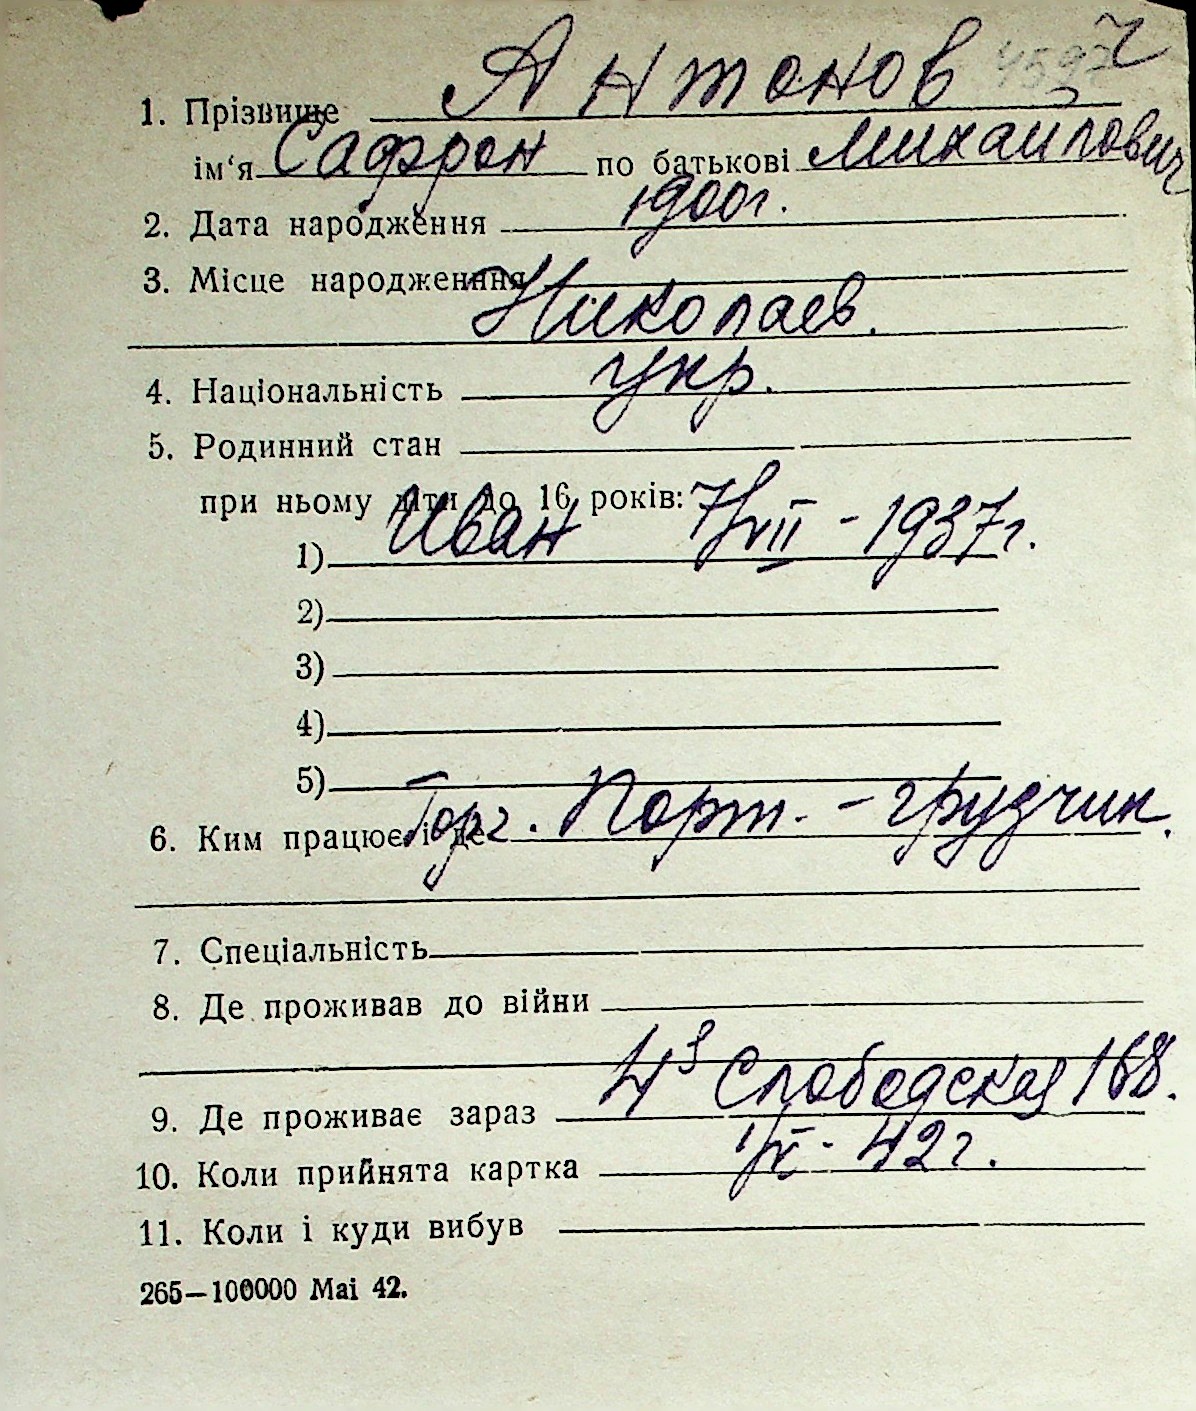 4597 ч
1. Прізвище Антонов
ім‘я Сафрон по батькові Михаилович
2. Дата народження 1900г.
3. Місце народженння
Николаев.
4. Національність укр.
5. Родинний стан
при ньому діти до 16 років:
1) Иван 7/VII - 1937г.
2)
3)
4)
5)
6. Ким працює і де Торг. Порт. - грузчик.
7. Спеціальність
8. Де проживав до війни
9. Де проживає зараз 4я Слободская 168.
10. Коли прийнята картка 1/IX - 42г.
11. Коли і куди вибув
265—100000 Mai 42.